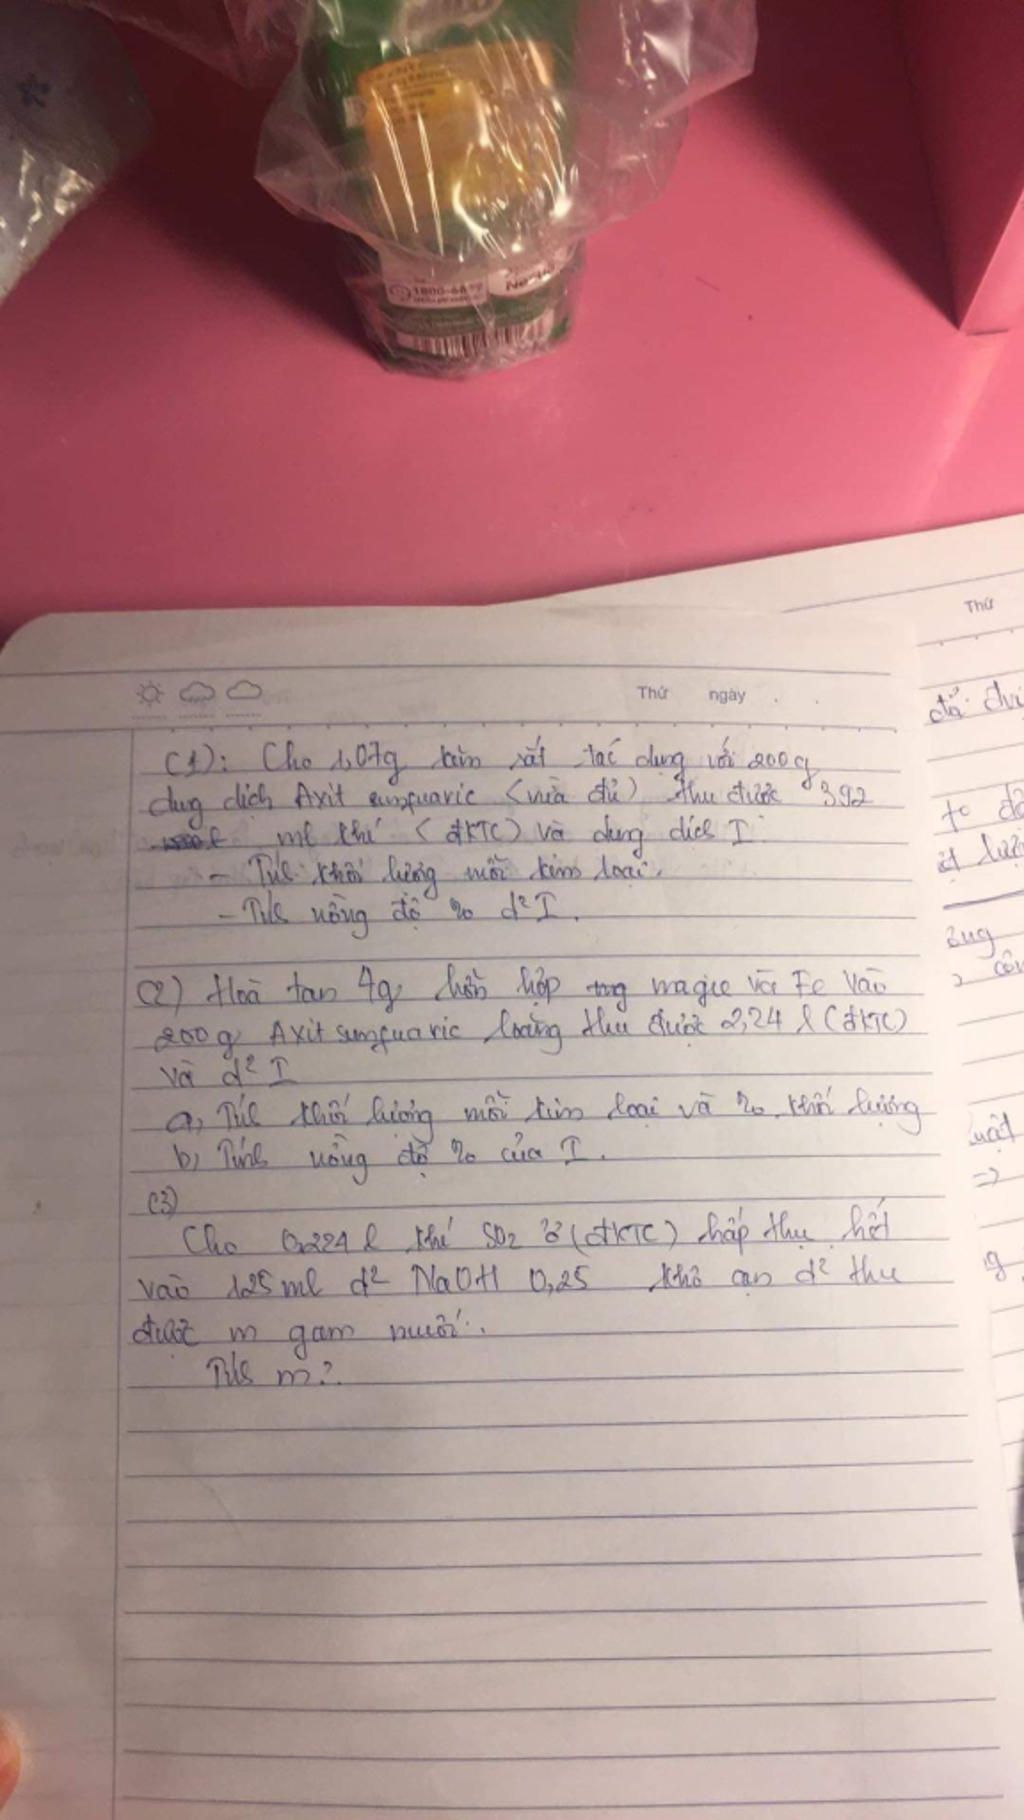 1800-6
Nest
Thứ ngày
Thứ
(1): Cho 1,07g kẽm sắt tác dụng với 200g
dung dịch Axit sunfuaric (vừa đủ) thu được 392
ml khí (đKTC) và dung dịch I
- Tính khối lượng mỗi kim loại.
- Tính nồng độ % d² I.
(2) Hoà tan 4g hỗn hợp magie và Fe vào
200g Axit sunfuaric loãng thu được 2,24 l (đKTC)
và d² I
a, Tính khối lượng mỗi kim loại và % khối lượng
b, Tính nồng độ % của I.
(3)
Cho 0,224 l khí SO2 ở (đKTC) hấp thụ hết
vào 125 ml d² NaOH 0,25 khô cạn d² thu
được m gam muối.
Tính m?